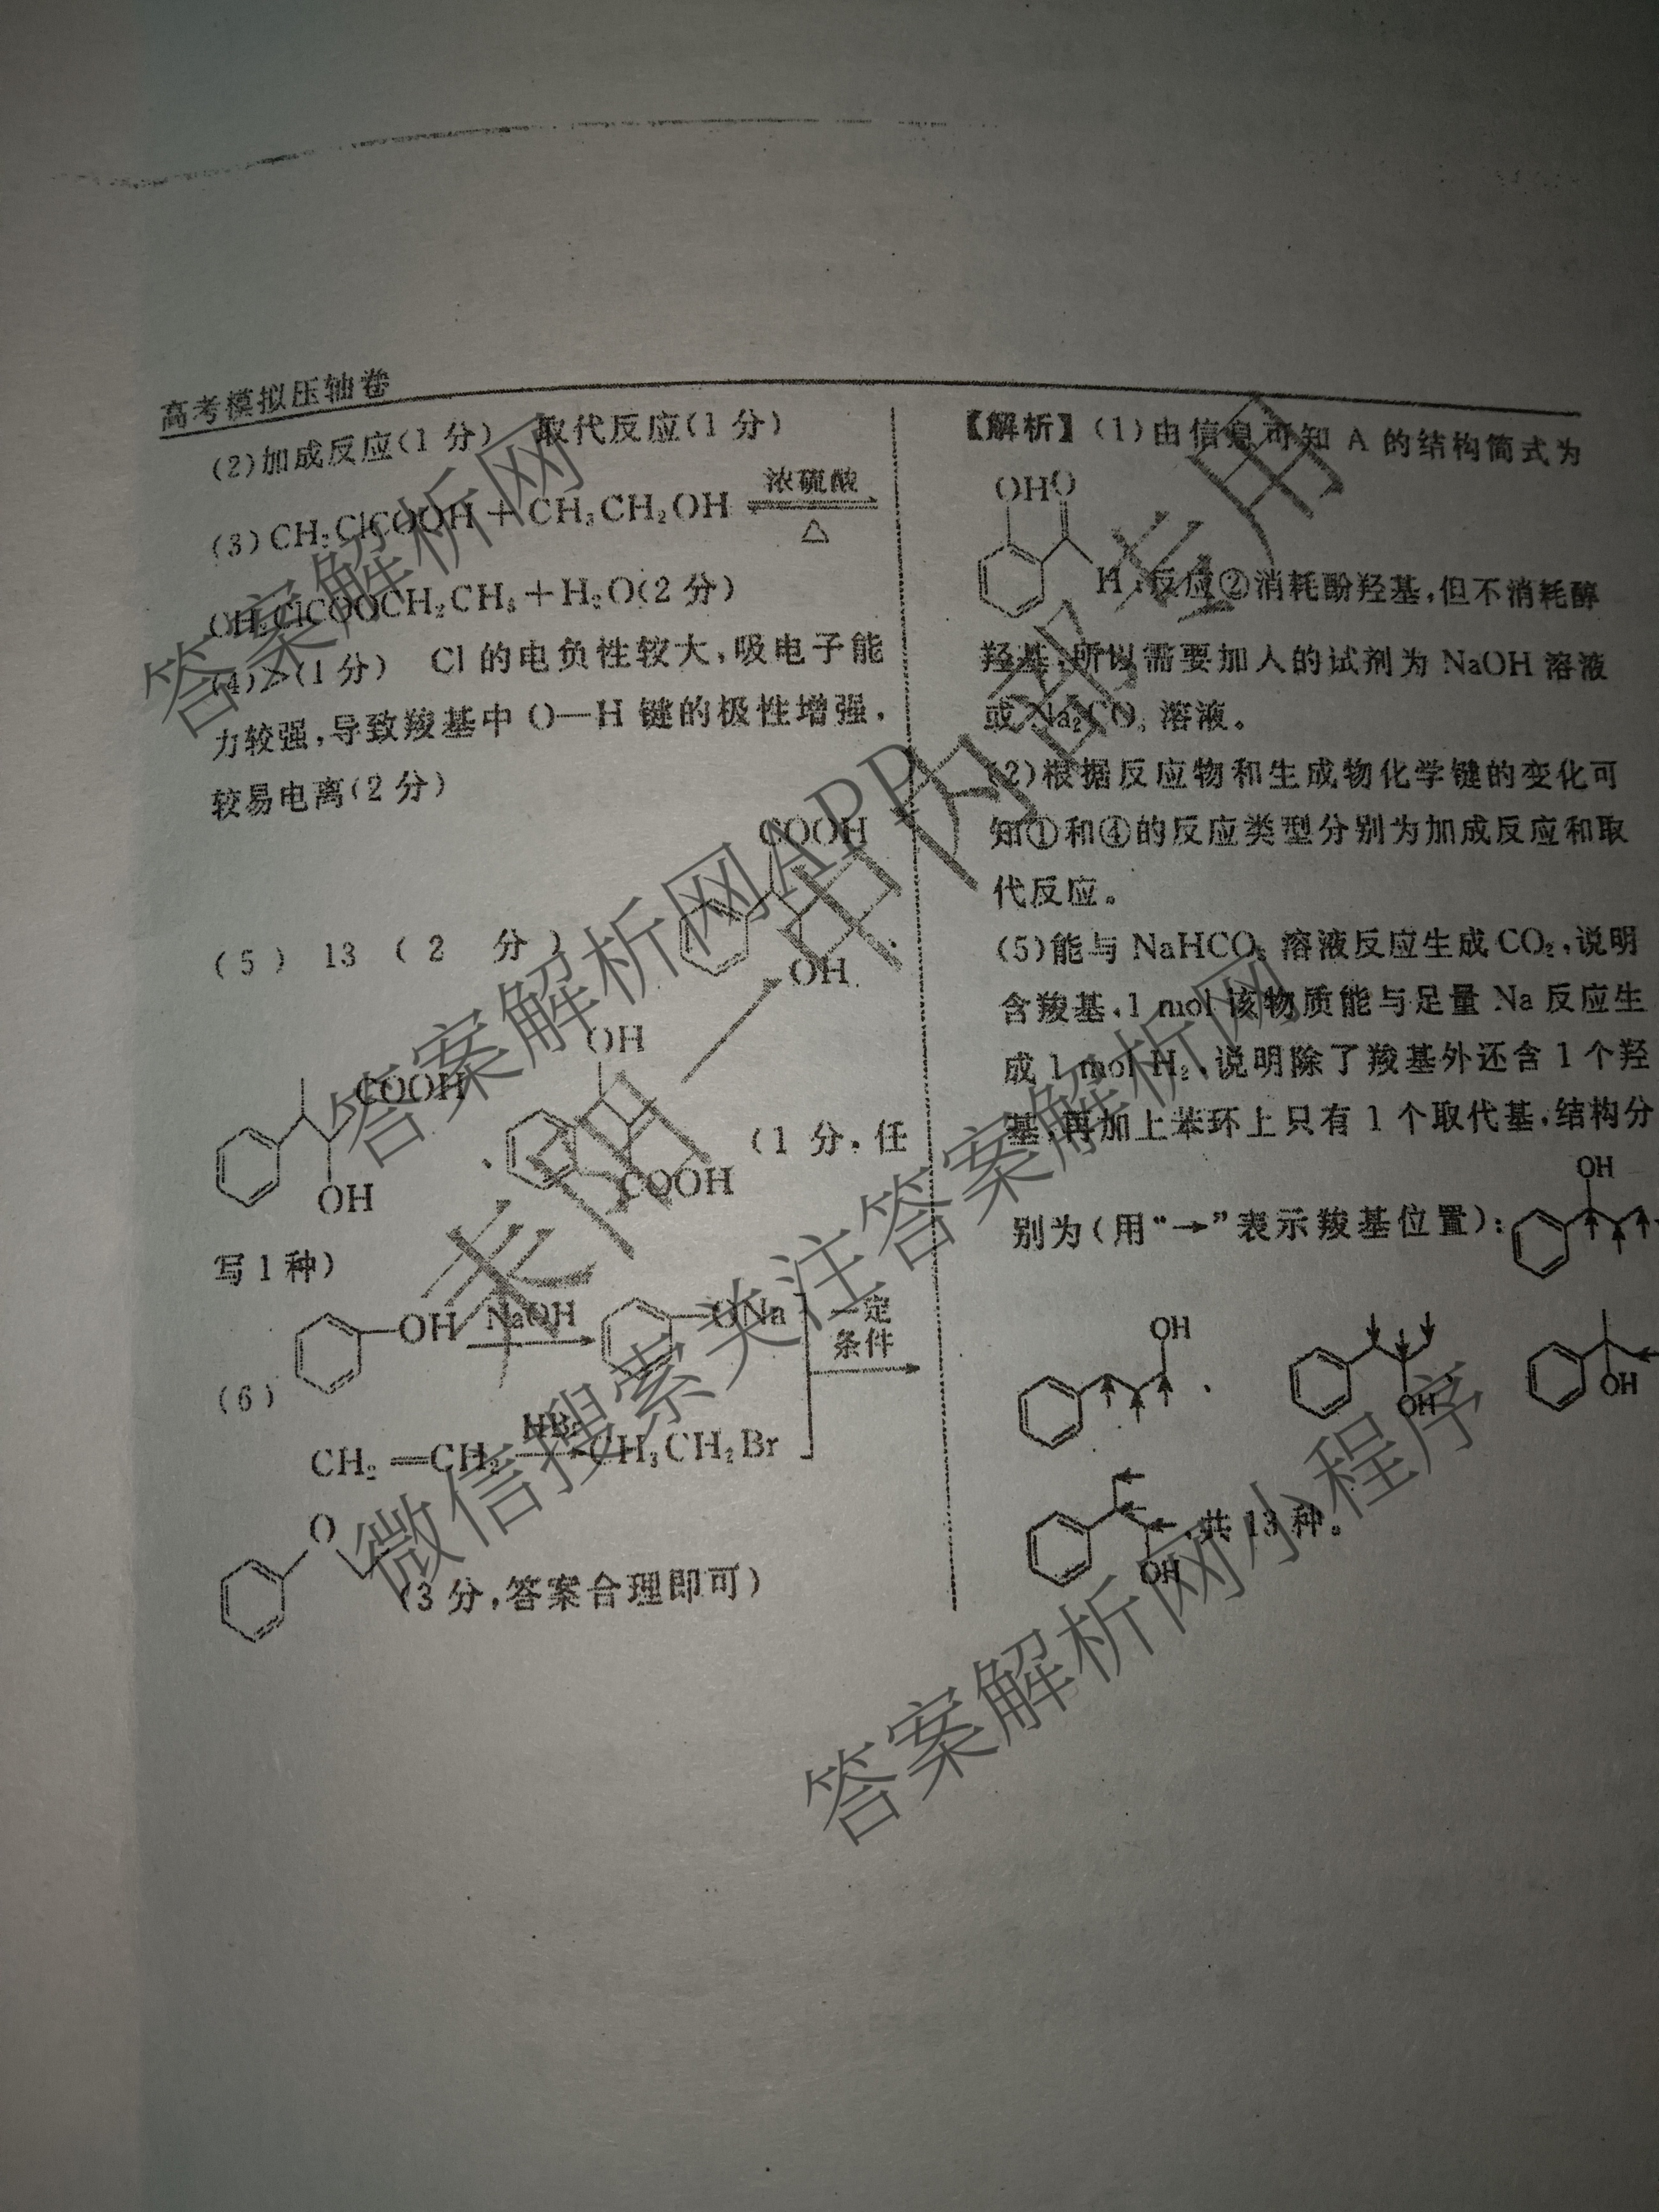 高考模拟压轴卷
(2)加成反应(1分) 取代反应(1分)
(3)CH₂ClCOOH+CH₃CH₂OH 浓硫酸 △
CH₂ClCOOCH₂CH₃+H₂O(2分)
(4)>(1分) Cl的电负性较大,吸电子能
力较强,导致羧基中O—H键的极性增强,
较易电离(2分)
COOH
(5) 13 (2 分)
OH
OH
COOH
OH
COOH
(1分,任
写1种)
OH NaOH ONa 一定
条件
(6)
CH₂=CH₂ HBr CH₃CH₂Br
O
(3分,答案合理即可)
【解析】(1)由信息可知A的结构简式为
OH O
H,反应②消耗酚羟基,但不消耗醇
羟基,所以需要加入的试剂为NaOH溶液
或Na₂CO₃溶液。
(2)根据反应物和生成物化学键的变化可
知①和④的反应类型分别为加成反应和取
代反应。
(5)能与NaHCO₃溶液反应生成CO₂,说明
含羧基,1 mol该物质能与足量Na反应生
成1 mol H₂,说明除了羧基外还含1个羟
基,再加上苯环上只有1个取代基,结构分
OH
别为(用“→”表示羧基位置):
OH
OH
OH
OH
,共13种。
答案解析网
答案解析网APP
天阳一中内部专用
微信搜索关注答案解析网
答案解析网小程序